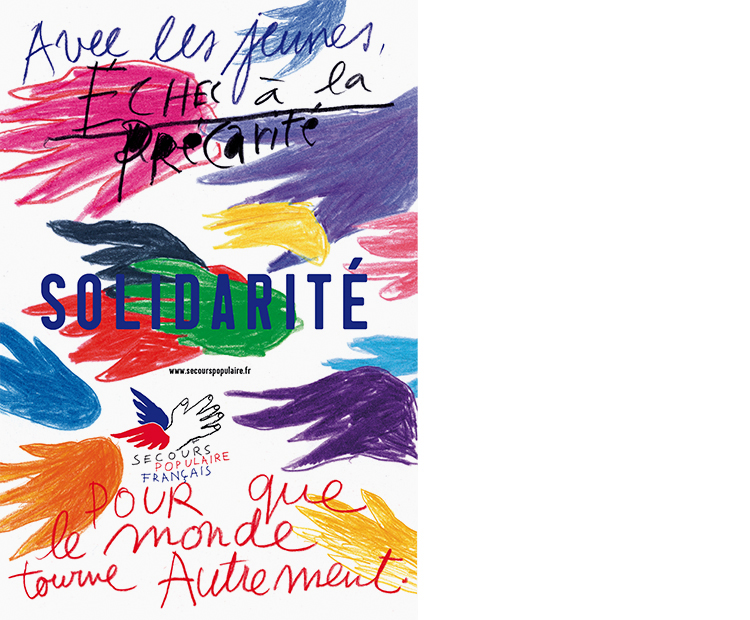 Avec les jeunes,
ÉCHEC à la
PRÉCARITÉ
SOLIDARITÉ
www.secourspopulaire.fr
SECOURS
POPULAIRE
FRANÇAIS
POUR que
le monde
tourne Autrement.